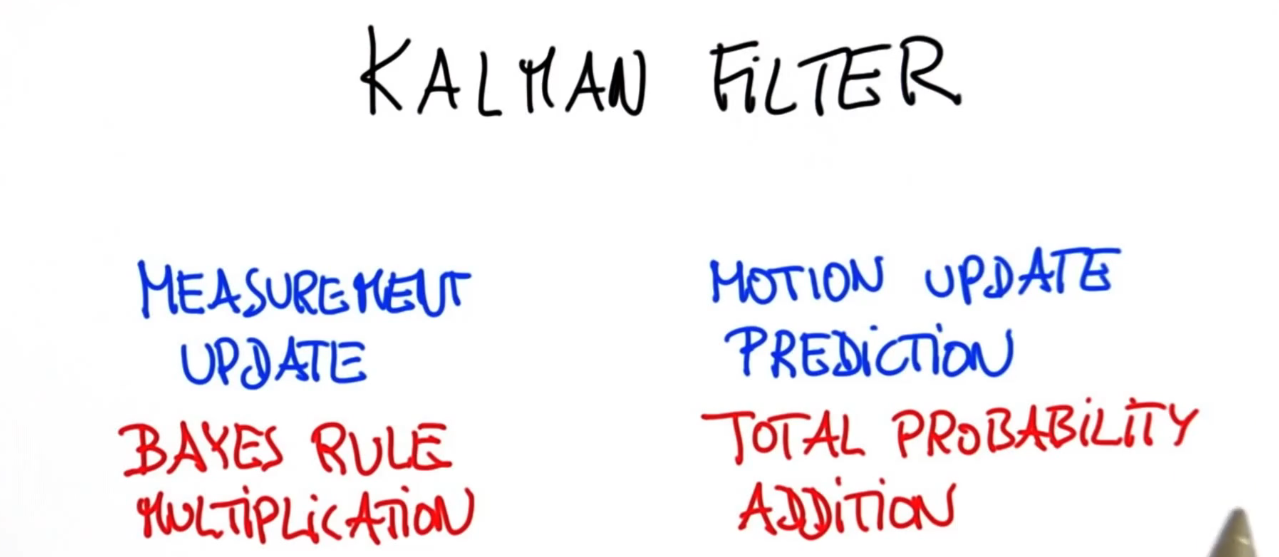 KALMAN FiLTER
MEASUREMENT
UPDATE
BAYES RULE
MULTiPLiCATiON
MOTION UPDATE
PREDiCTiON
TOTAL PROBABiLiTY
ADDiTiON